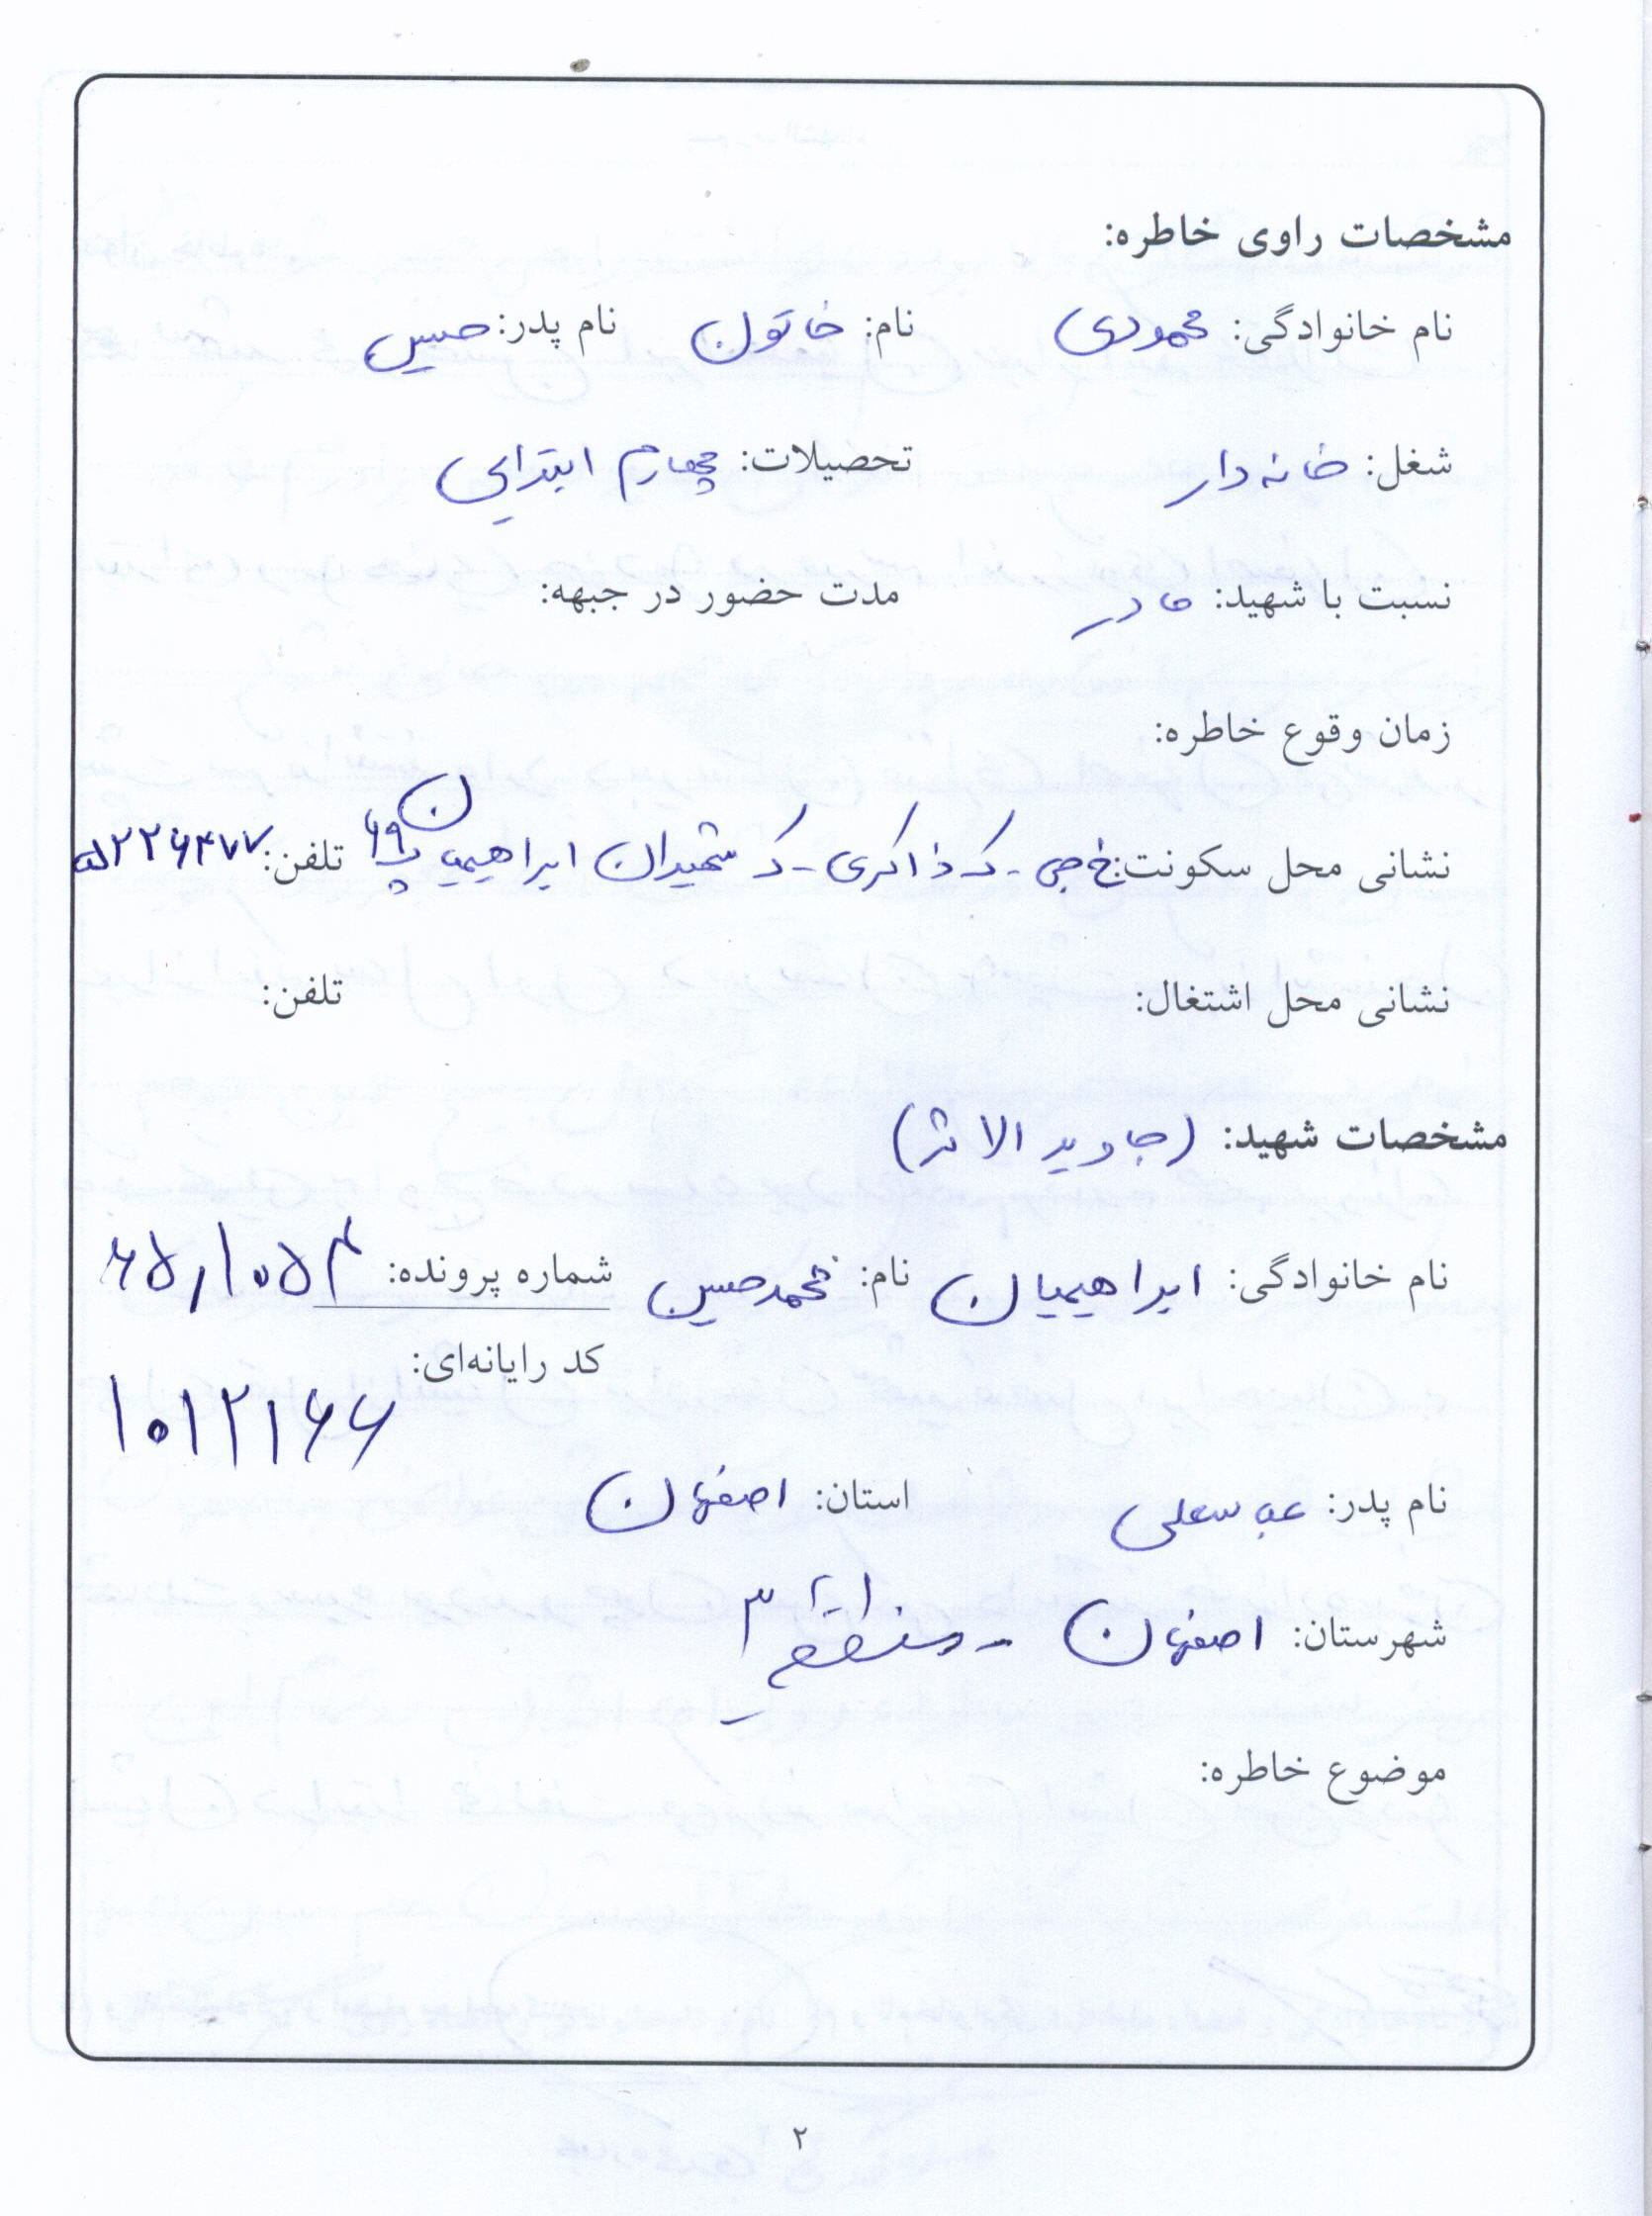 مشخصات راوی خاطره:
نام خانوادگی: محمودی نام: خاتون نام پدر: حسین
شغل: خانه دار تحصیلات: چهارم ابتدایی
نسبت با شهید: مادر مدت حضور در جبهه:
زمان وقوع خاطره:
نشانی محل سکونت: خ جی - ک ذاکری - ک شهیدان ابراهیمیان پ ۶۹ تلفن: ۵۲۲۶۴۷۷
نشانی محل اشتغال: تلفن:
مشخصات شهید: (جاوید الاثر)
نام خانوادگی: ابراهیمیان نام: محمدحسین شماره پرونده: ۶۵/۱۰۵۴
کد رایانه‌ای: ۱۰۱۲۱۶۶
نام پدر: عباسعلی استان: اصفهان
شهرستان: اصفهان - منطقه ۳
موضوع خاطره:
۲